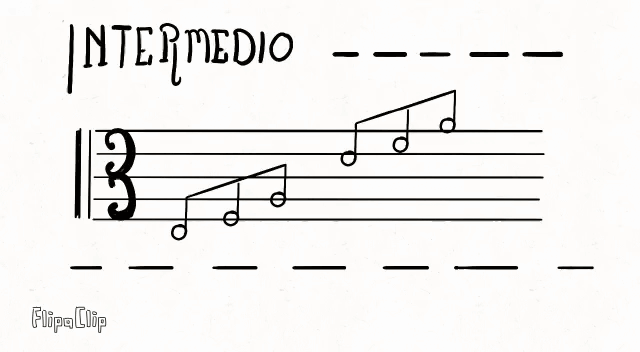 INTERMEDIO
3
FlipaClip